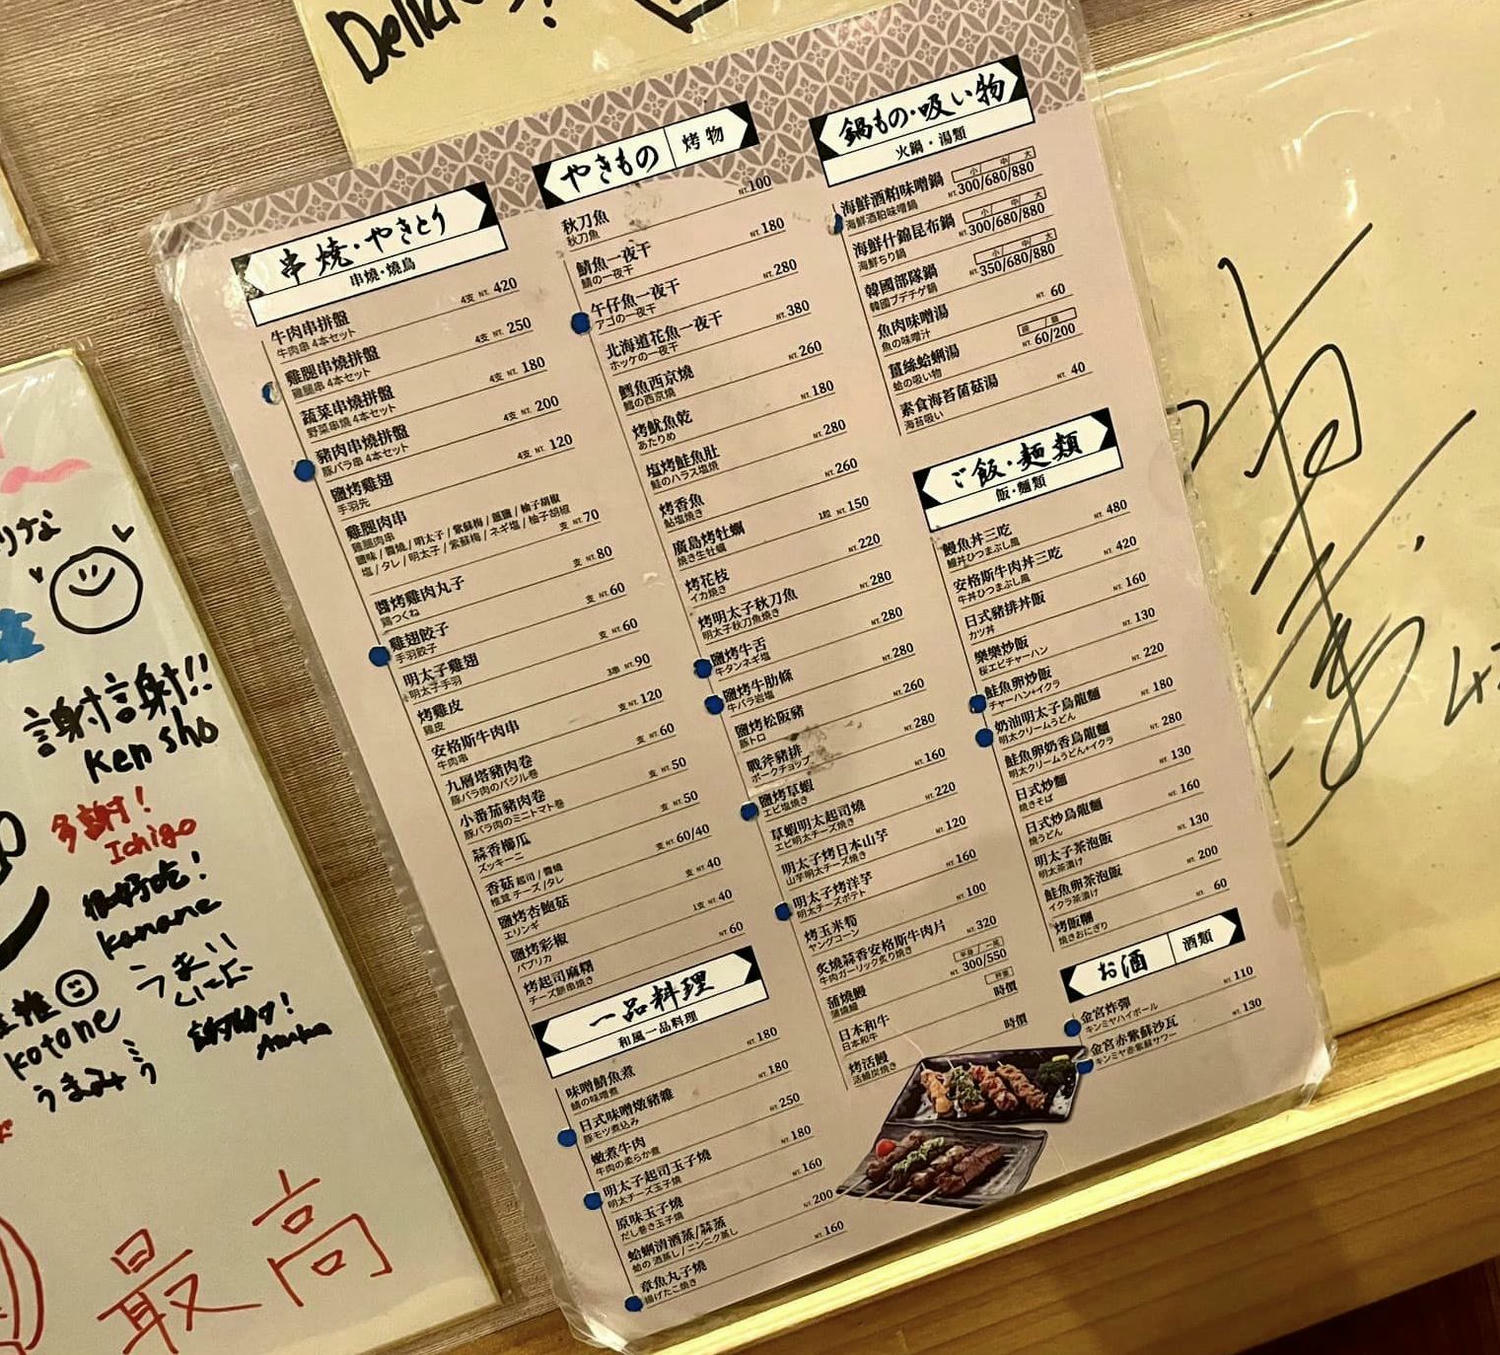 Delici
串燒・やきとり
串燒・燒鳥
牛肉串拼盤 4支 NT. 420
牛肉串 4本セット
雞腿串燒拼盤 4支 NT. 250
雞腿串 4本セット
蔬菜串燒拼盤 4支 NT. 180
野菜串燒 4本セット
豬肉串燒拼盤 4支 NT. 200
豚バラ串 4本セット
鹽烤雞翅 4支 NT. 120
手羽先
雞腿肉串
雞腿肉串
鹽味 / 醬燒 / 明太子 / 紫蘇梅 / 蔥鹽 / 柚子胡椒
塩 / タレ / 明太子 / 紫蘇梅 / ネギ塩 / 柚子胡椒 支 NT. 70
醬烤雞肉丸子 支 NT. 80
鶏つくね
雞翅餃子 支 NT. 60
手羽餃子
明太子雞翅 支 NT. 60
明太子手羽
烤雞皮 3串 NT. 90
雞皮
安格斯牛肉串 支 NT. 120
牛肉串
九層塔豬肉卷 支 NT. 60
豚バラ肉のバジル巻
小番茄豬肉卷 支 NT. 50
豚バラ肉のミニトマト巻
蒜香櫛瓜 支 NT. 50
ズッキーニ
香菇 起司 / 醬燒 支 NT. 60/40
椎茸 チーズ / タレ
鹽烤杏鮑菇 支 NT. 40
エリンギ
鹽烤彩椒 1支 NT. 40
パプリカ
烤起司麻糬 NT. 60
チーズ餅串焼き
一品料理
和風一品料理
味噌鯖魚煮 NT. 180
鯖の味噌煮
日式味噌燉豬雜 NT. 180
豚モツ煮込み
嫩煮牛肉 NT. 250
牛肉の柔らか煮
明太子起司玉子燒 NT. 180
明太チーズ玉子燒
原味玉子燒 NT. 160
だし巻き玉子燒
蛤蜊清酒蒸/蒜蒸 NT. 200
蛤の 酒蒸し / ニンニク蒸し
章魚丸子燒 NT. 160
揚げたこ焼き
やきもの 烤物
秋刀魚 NT. 100
秋刀魚
鯖魚一夜干 NT. 180
鯖の一夜干
午仔魚一夜干 NT. 280
アゴの一夜干
北海道花魚一夜干 NT. 380
ホッケの一夜干
鱈魚西京燒 NT. 260
鱈の西京燒
烤魷魚乾 NT. 180
あたりめ
塩烤鮭魚肚 NT. 280
鮭のハラス塩焼
烤香魚 NT. 260
鮎塩焼き
廣島烤牡蠣 1段 NT. 150
焼き生牡蠣
烤花枝 NT. 220
イカ焼き
烤明太子秋刀魚 NT. 280
明太子秋刀魚焼き
鹽烤牛舌 NT. 280
牛タンネギ塩
鹽烤牛肋條 NT. 280
牛バラ岩塩
鹽烤松阪豬 NT. 260
豚トロ
戰斧豬排 NT. 280
ポークチョップ
鹽烤草蝦 NT. 160
エビ塩焼き
草蝦明太起司燒 NT. 220
エビ明太チーズ焼き
明太子烤日本山芋 NT. 120
山芋明太チーズ焼き
明太子烤洋芋 NT. 160
明太チーズポテト
烤玉米筍 NT. 100
ヤングコーン
炙燒蒜香安格斯牛肉片 NT. 320
牛肉ガーリック炙り焼き
蒲燒鰻 NT. 300/550
蒲燒鰻
日本和牛 時價
日本和牛
烤活鰻 時價
活鰻炭焼き
鍋もの・吸い物
火鍋・湯類
小 中 大
海鮮酒粕味噌鍋 NT. 300/680/880
海鮮酒粕味噌鍋
小 中 大
海鮮什錦昆布鍋 NT. 300/680/880
海鮮ちり鍋
小 中 大
韓國部隊鍋 NT. 350/680/880
韓國プデチゲ鍋
魚肉味噌湯 NT. 60
魚の味噌汁
薑絲蛤蜊湯 NT. 60/200
蛤の吸い物
素食海苔菌菇湯 NT. 40
海苔吸い
ご飯・麺類
飯・麵類
鰻魚丼三吃 NT. 480
鰻丼ひつまぶし風
安格斯牛肉丼三吃 NT. 420
牛丼ひつまぶし風
日式豬排丼飯 NT. 160
カツ丼
櫻樂炒飯 NT. 130
桜エビチャーハン
鮭魚卵炒飯 NT. 220
チャーハン+イクラ
奶油明太子烏龍麵 NT. 180
明太クリームうどん
鮭魚卵奶香烏龍麵 NT. 280
明太クリームうどん+イクラ
日式炒麵 NT. 130
焼きそば
日式炒烏龍麵 NT. 160
焼うどん
明太子茶泡飯 NT. 130
明太茶漬け
鮭魚卵茶泡飯 NT. 200
イクラ茶漬け
烤飯糰 NT. 60
焼きおにぎり
お酒 酒類
金宮炸彈 NT. 110
キンミヤハイボール
金宮赤紫蘇沙瓦 NT. 130
キンミヤ赤紫蘇サワー
謝謝!!
Ken sho
多謝!
Ichigo
很好吃!
kanane
kotone
うまみ
謝謝!
Asuka
最高